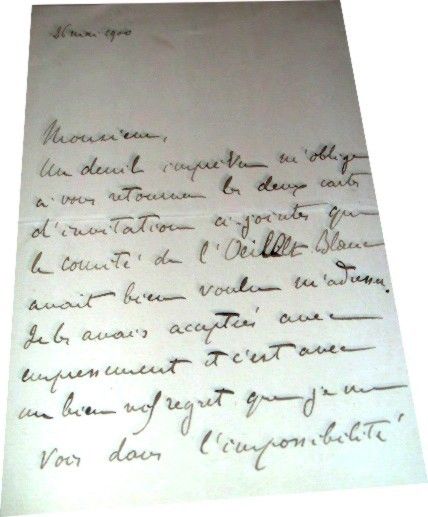 26 mai 1900
Monsieur,
Un deuil imprévu m'oblige
à vous retourner les deux cartes
d'invitation ci-jointes que
le comité de l'Oeillet Blanc
avait bien voulu m'adresser.
Je les avais acceptées avec
empressement et c'est avec
un bien vif regret que je me
vois dans l'impossibilité